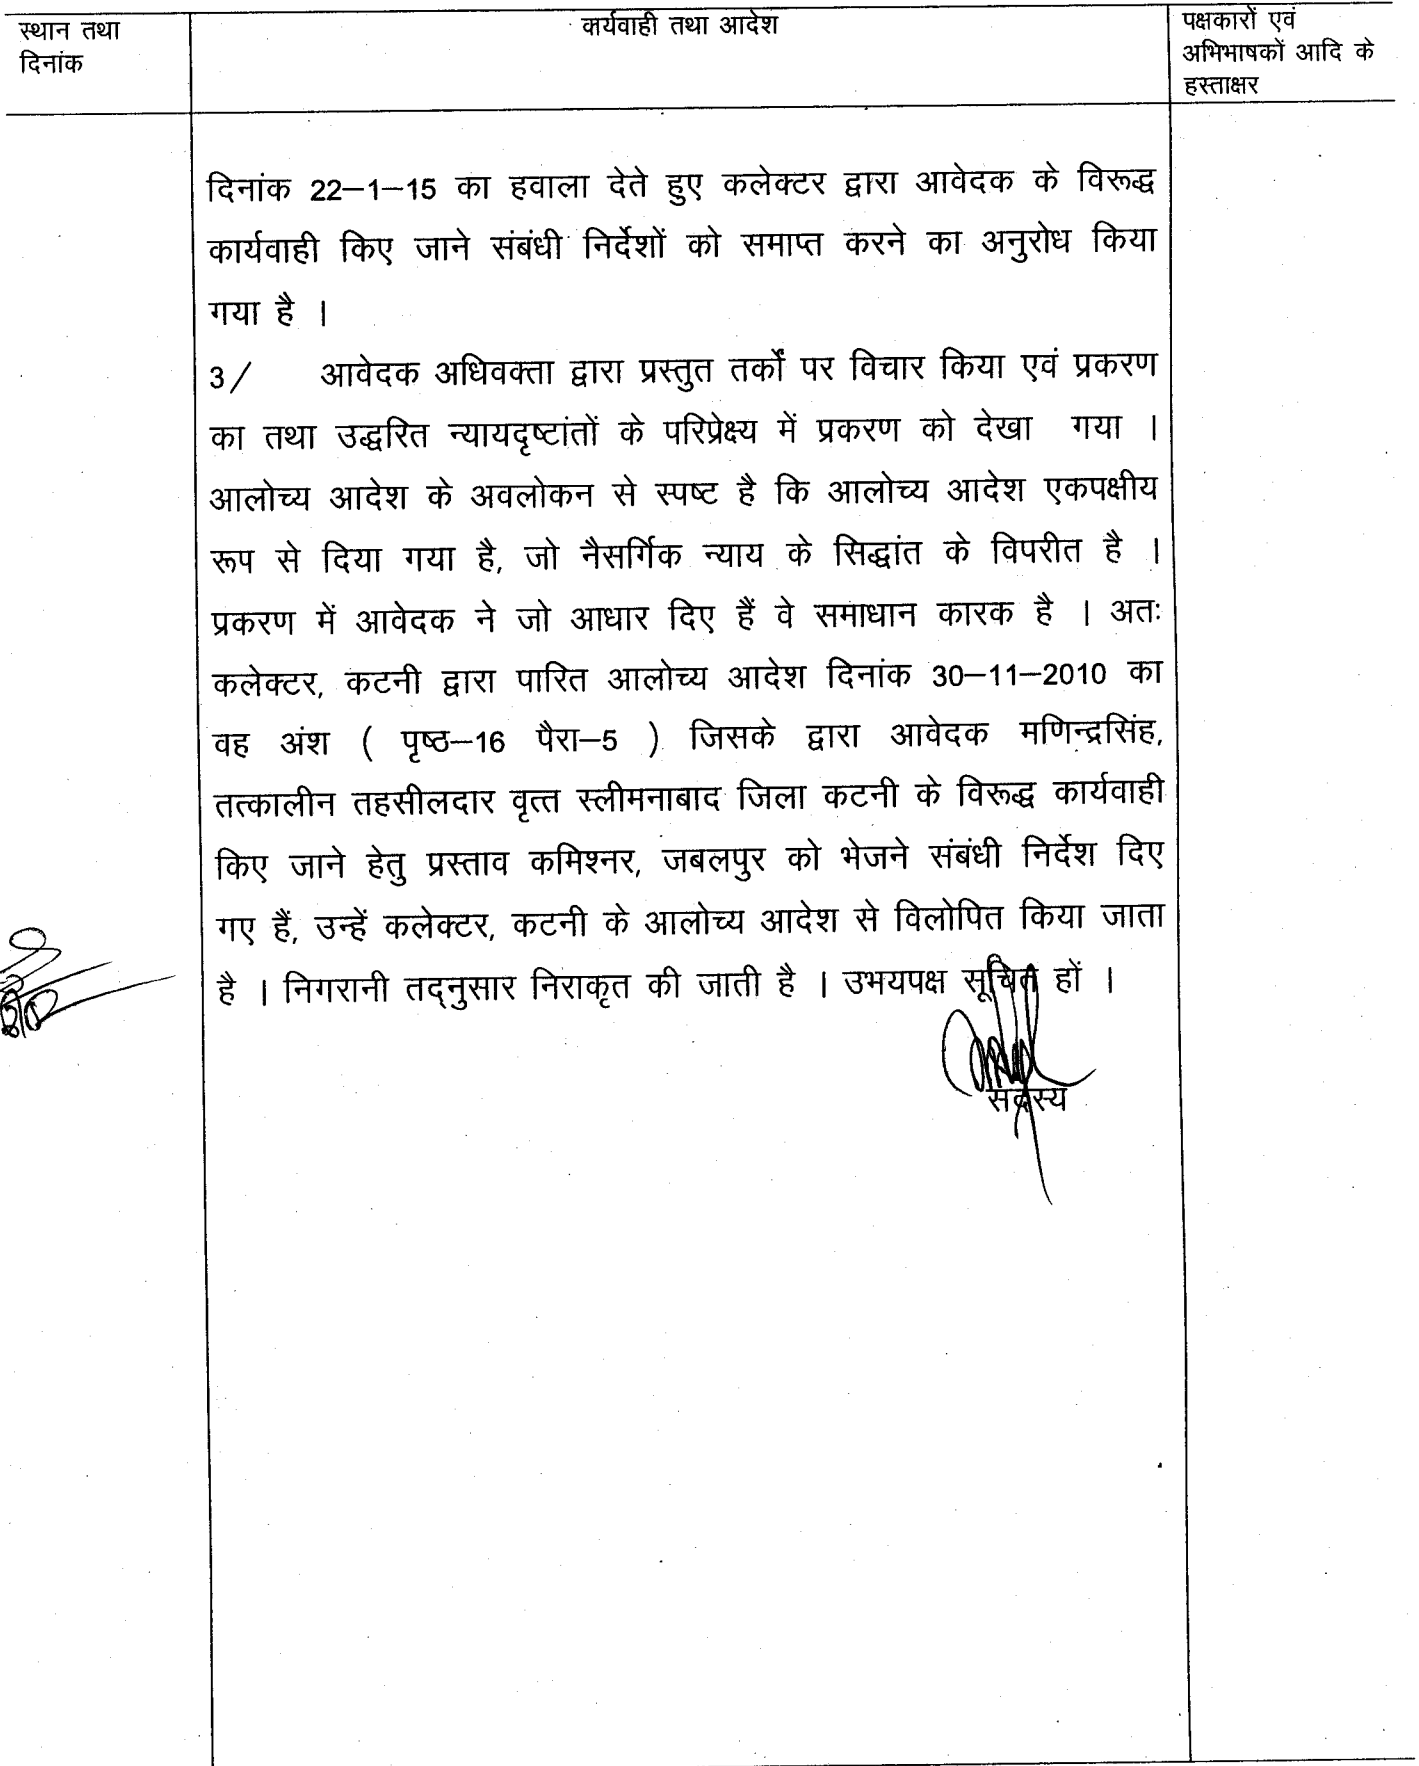 स्थान तथा
दिनांक
कार्यवाही तथा आदेश
पक्षकारों एवं
अभिभाषकों आदि के
हस्ताक्षर
दिनांक 22–1–15 का हवाला देते हुए कलेक्टर द्वारा आवेदक के विरूद्ध
कार्यवाही किए जाने संबंधी निर्देशों को समाप्त करने का अनुरोध किया
गया है ।
3/ आवेदक अधिवक्ता द्वारा प्रस्तुत तर्कों पर विचार किया एवं प्रकरण
का तथा उद्धरित न्यायदृष्टांतों के परिप्रेक्ष्य में प्रकरण को देखा गया ।
आलोच्य आदेश के अवलोकन से स्पष्ट है कि आलोच्य आदेश एकपक्षीय
रूप से दिया गया है, जो नैसर्गिक न्याय के सिद्धांत के विपरीत है ।
प्रकरण में आवेदक ने जो आधार दिए हैं वे समाधान कारक है । अतः
कलेक्टर, कटनी द्वारा पारित आलोच्य आदेश दिनांक 30–11–2010 का
वह अंश ( पृष्ठ–16 पैरा–5 ) जिसके द्वारा आवेदक मणिन्द्रसिंह,
तत्कालीन तहसीलदार वृत्त स्लीमनाबाद जिला कटनी के विरूद्ध कार्यवाही
किए जाने हेतु प्रस्ताव कमिश्नर, जबलपुर को भेजने संबंधी निर्देश दिए
गए हैं, उन्हें कलेक्टर, कटनी के आलोच्य आदेश से विलोपित किया जाता
है । निगरानी तद्नुसार निराकृत की जाती है । उभयपक्ष सूचित हों ।
सदस्य